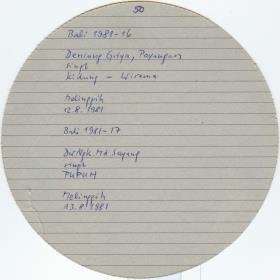 50
Bali 1981-16
Deniang Griya, Payangan
singt
Kidung – Wirama
Melinggih
12.8.1981
Bali 1981-17
Md Sayang
singt
PUPUH
Melinggih
13.8.1981